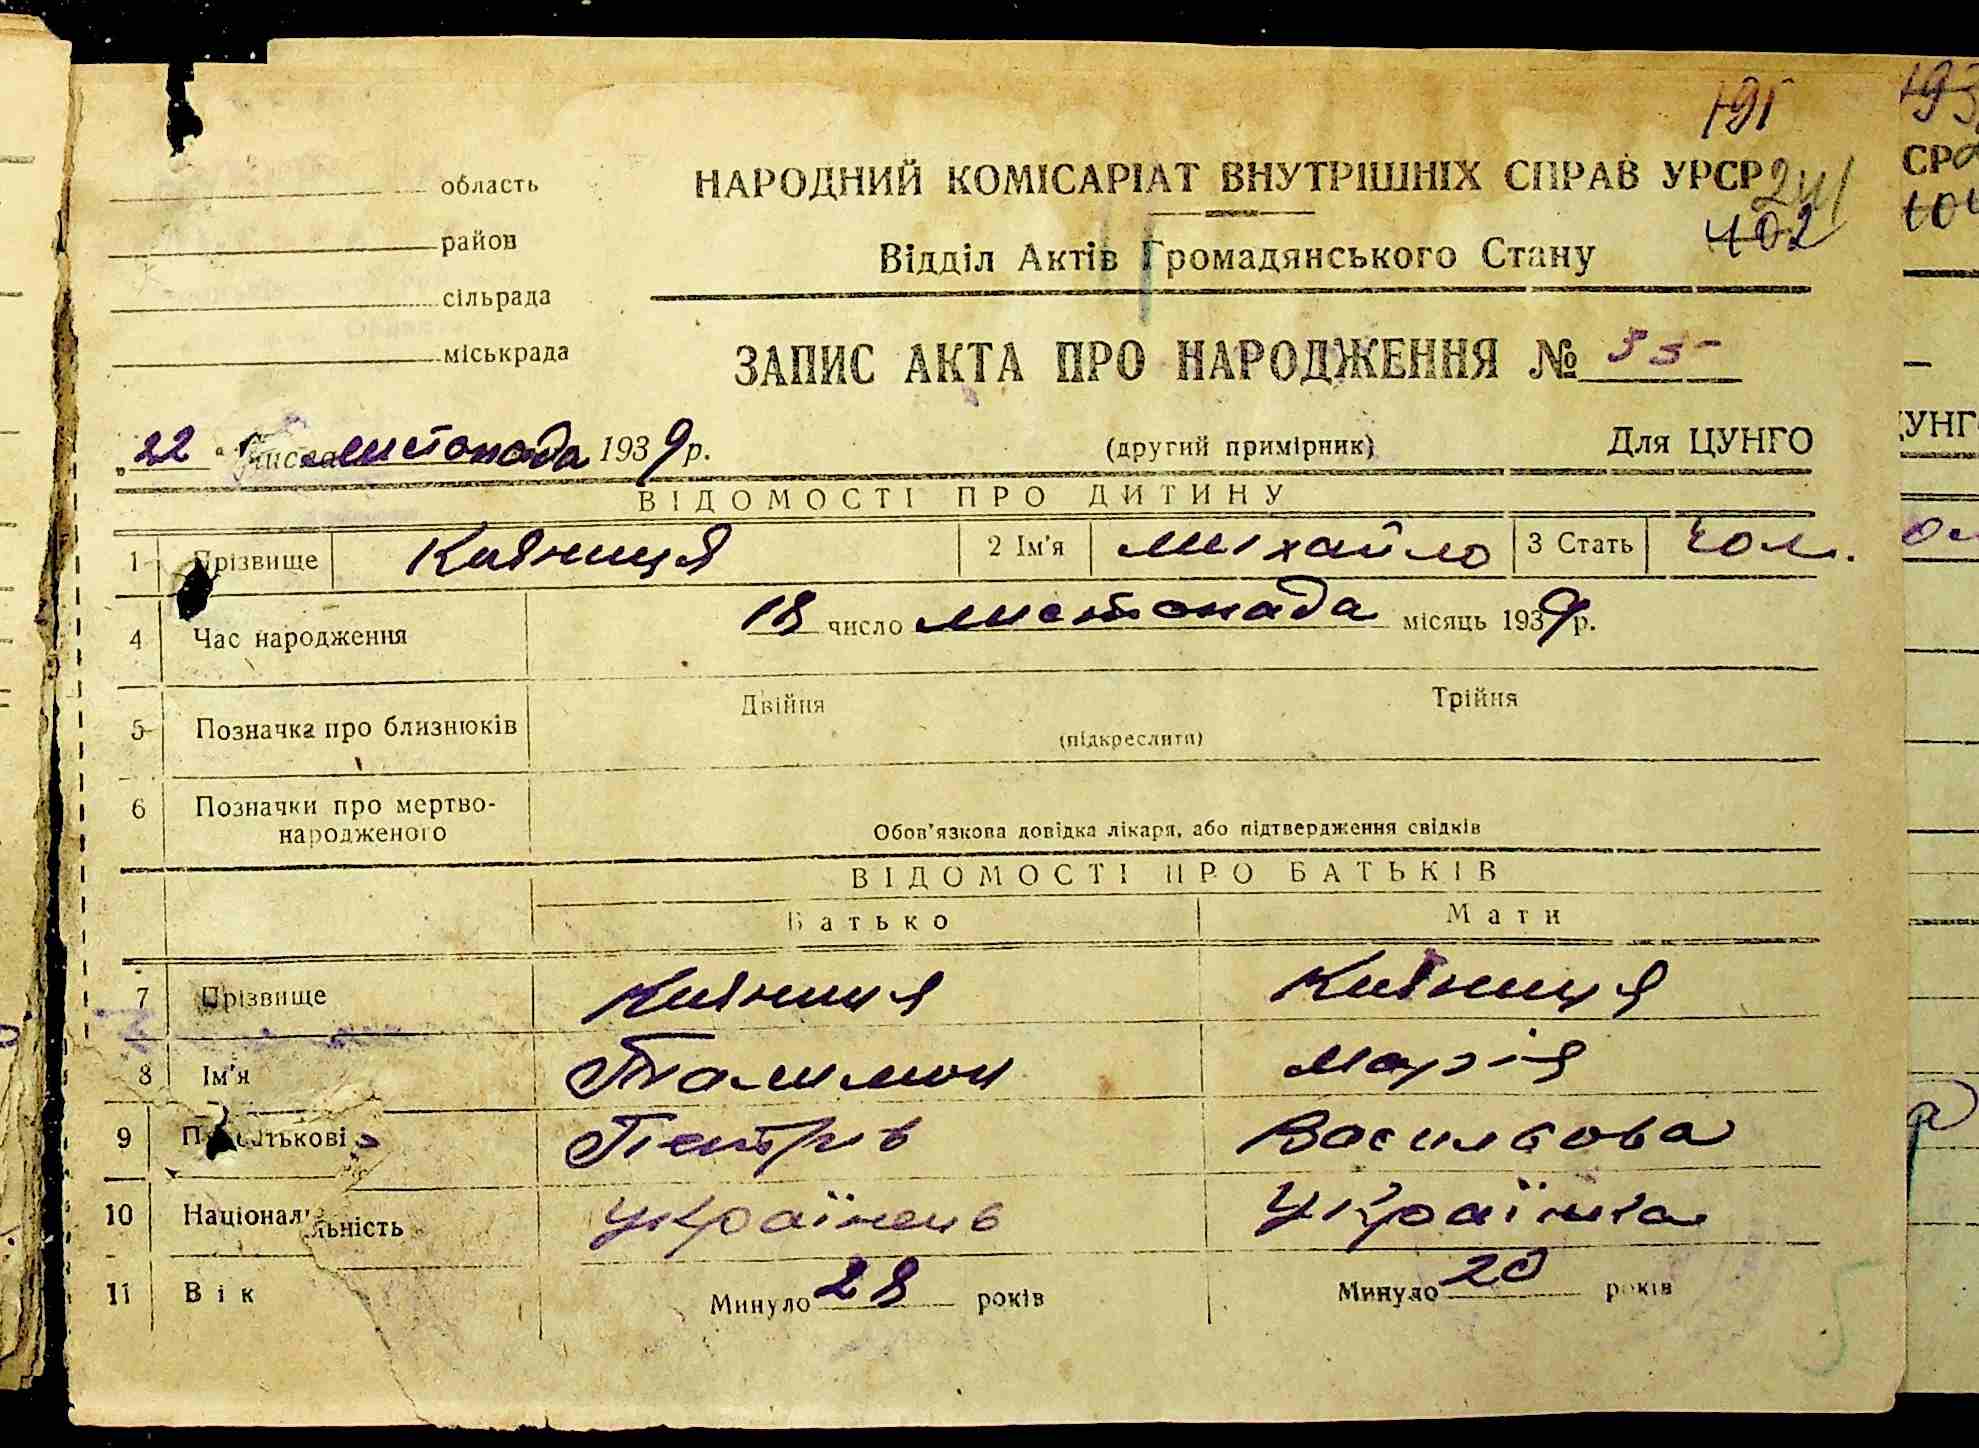 191
область НАРОДНИЙ КОМІСАРІАТ ВНУТРІШНІХ СПРАВ УРСР 241
район 402
Відділ Актів Громадянського Стану
сільрада
міськрада ЗАПИС АКТА ПРО НАРОДЖЕННЯ № 35
„22“ числа листопада 1939 р. (другий примірник) Для ЦУНГО
ВІДОМОСТІ ПРО ДИТИНУ
1 Прізвище Княниця 2 Ім'я Михайло 3 Стать чол.
4 Час народження 18 число листопада місяць 1939 р.
5 Позначка про близнюків Двійня Трійня
(підкреслити)
6 Позначки про мертво-
народженого Обов'язкова довідка лікаря, або підтвердження свідків
ВІДОМОСТІ ПРО БАТЬКІВ
Батько Мати
7 Прізвище Княниця Княниця
8 Ім'я Марія
9 По батькові Петрів Васильова
10 Національність Українець Українка
11 Вік Минуло 28 років Минуло 20 років
5